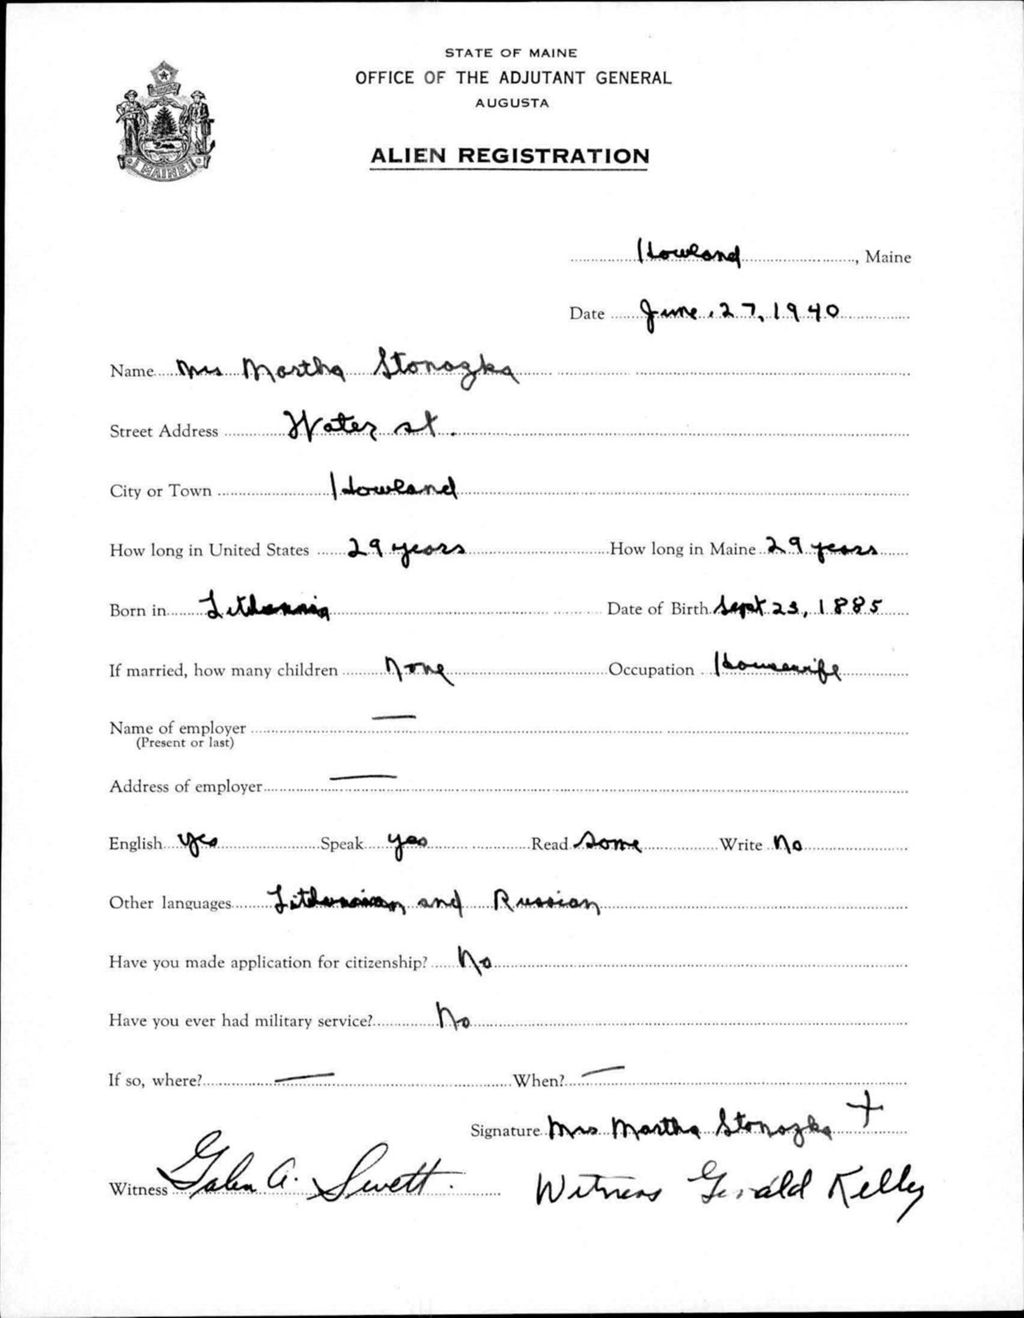 STATE OF MAINE
OFFICE OF THE ADJUTANT GENERAL
AUGUSTA
ALIEN REGISTRATION
MAINE
Howland, Maine
Date June 27, 1940
Name Mrs Martha Stonozka
Street Address Water st.
City or Town Howland
How long in United States 29 years How long in Maine 29 years
Born in Lithuania Date of Birth Sept 23, 1885
If married, how many children None Occupation Housewife
Name of employer —
(Present or last)
Address of employer —
English yes Speak yes Read Some Write No
Other languages Lithuanian and Russian
Have you made application for citizenship? No
Have you ever had military service? No
If so, where? — When? —
Signature Mrs Martha Stonozka +
Witness Galen A. Swett. Witness Gerald Kelley